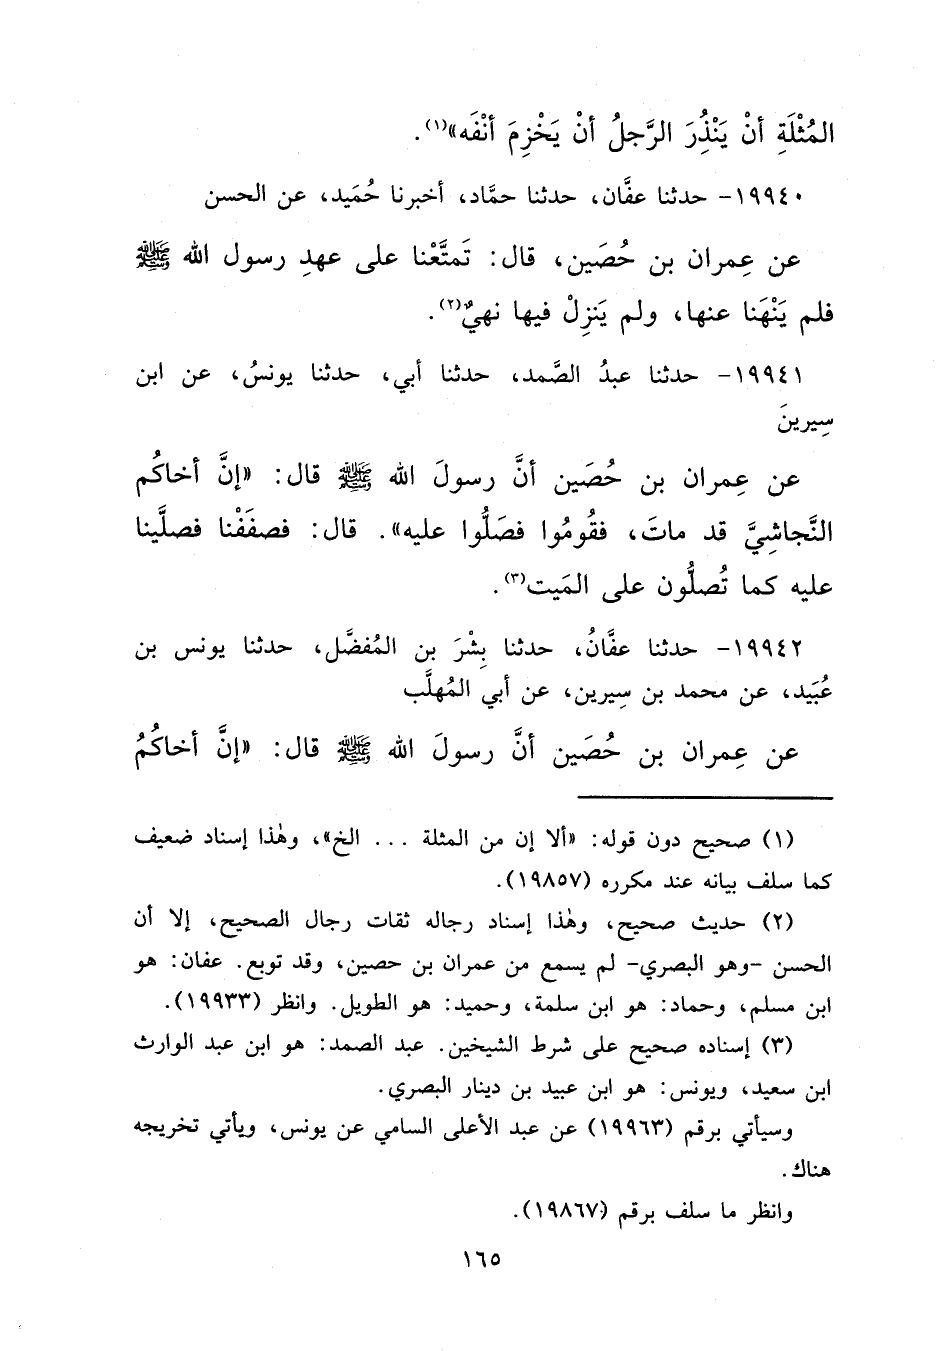 المُثْلَةِ أنْ يَنْذُِرَ الرَّجلُ أنْ يَخْزِمَ أنْفَه»(١).
١٩٩٤٠- حدثنا عفَّان، حدثنا حمَّاد، أخبرنا حُمَيد، عن الحسن
عن عِمران بن حُصَين، قال: تَمتَّعْنا على عهدِ رسول الله ﷺ
فلم يَنْهَنا عنها، ولم يَنزِلْ فيها نهيٌ(٢).
١٩٩٤١- حدثنا عبدُ الصَّمد، حدثنا أبي، حدثنا يونسُ، عن ابن
سِيرينَ
عن عِمران بن حُصَين أنَّ رسولَ الله ﷺ قال: «إنَّ أخاكُم
النَّجاشِيَّ قد ماتَ، فقُومُوا فصَلُّوا عليه». قال: فصفَفْنا فصلَّينا
عليه كما تُصلُّون على المَيت(٣).
١٩٩٤٢- حدثنا عفَّانُ، حدثنا بِشْرَ بن المُفضَّل، حدثنا يونس بن
عُبَيد، عن محمد بن سِيرين، عن أبي المُهلَّب
عن عِمران بن حُصَين أنَّ رسولَ الله ﷺ قال: «إنَّ أخاكُمُ
(١) صحيح دون قوله: «ألا إن من المثلة ... الخ»، وهٰذا إسناد ضعيف
كما سلف بيانه عند مكرره (١٩٨٥٧).
(٢) حديث صحيح، وهٰذا إسناد رجاله ثقات رجال الصحيح، إلا أن
الحسن -وهو البصري- لم يسمع من عمران بن حصين، وقد توبع. عفان: هو
ابن مسلم، وحماد: هو ابن سلمة، وحميد: هو الطويل. وانظر (١٩٩٣٣).
(٣) إسناده صحيح على شرط الشيخين. عبد الصمد: هو ابن عبد الوارث
ابن سعيد، ويونس: هو ابن عبيد بن دينار البصري.
وسيأتي برقم (١٩٩٦٣) عن عبد الأعلى السامي عن يونس، ويأتي تخريجه
هناك.
وانظر ما سلف برقم (١٩٨٦٧).
١٦٥